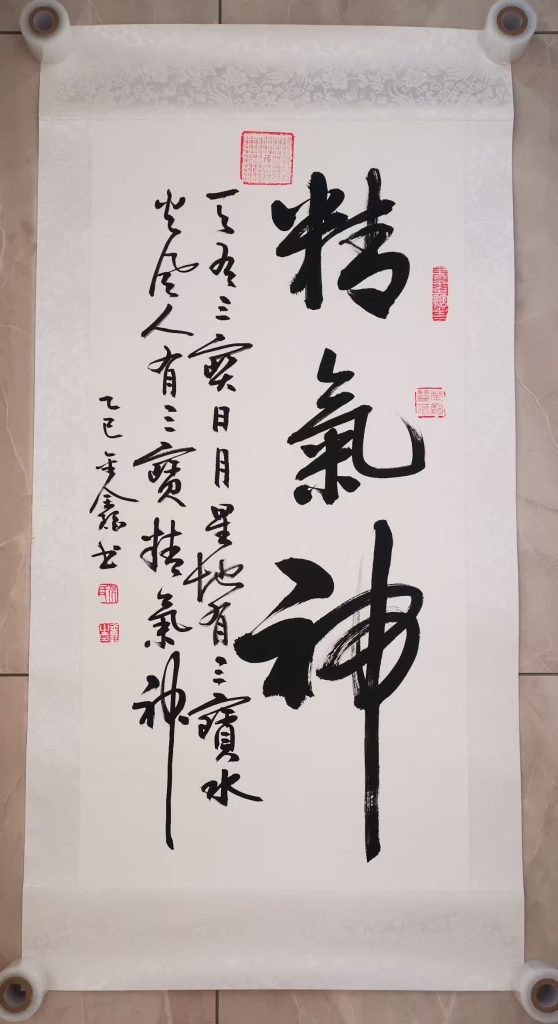 精氣神
天有三寳日月星地有三寳水
火風人有三寳精氣神
乙巳
書